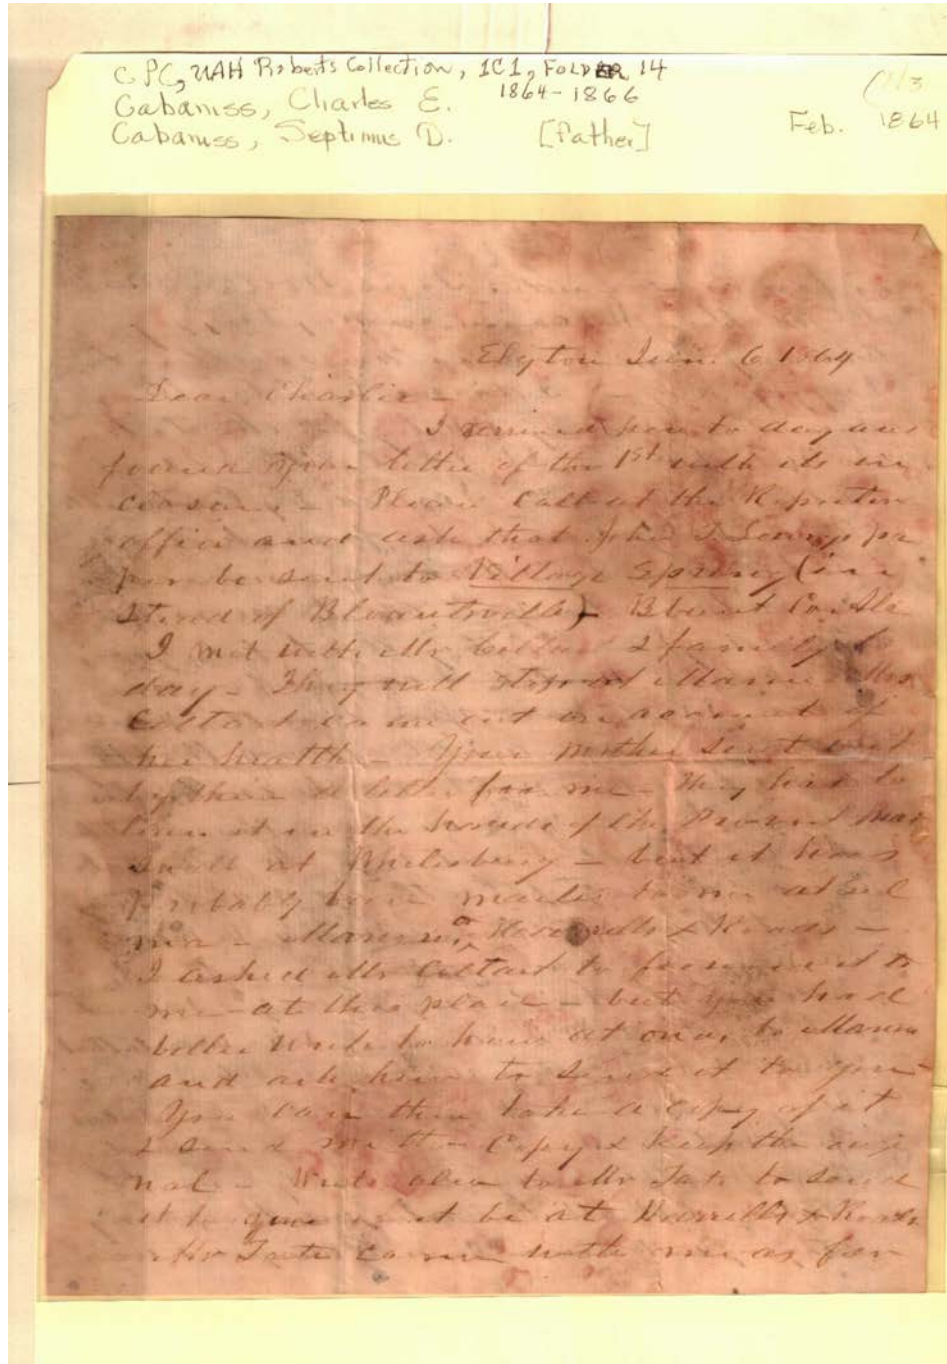 CPC, UAH Roberts Collection, 1C1, FOLDER 14
Cabaniss, Charles E. 1864-1866
Cabaniss, Septimus D. [Father] Feb. 1864
Elyton 6 1864
Dear Charlie -
I arrived here to day and
found your letter of the 1st with its in
closure - Please call at the Reporter
office and ask that John T. pa
per be sent to Village Spring (in
stead of Blountsville) - Blount Co. Ala
I met with Mr Coltart & family to
day - They will stop at Mrs
Coltart came out on account of
her health - Your mother sent out
by them a letter for me - They had to
leave it in the hands of the Provost Mar
shall at - but it has
probably been mailed to me at Sel
ma -
I asked Mr Coltart to forward it to
me at this place - but you had
better write to him at once, to
and ask him to send it to you -
You can then take a copy of it
& send me the copy & keep the origi
nal - Write also to Mr Tate to send
it to you if it be at
Mr Tate came with me as far